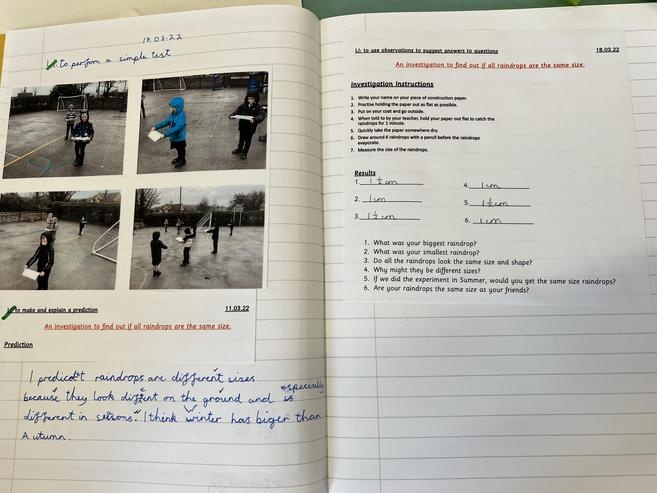 17.03.22
to perfom a simple test
to make and explain a prediction 11.03.22
An investigation to find out if all raindrops are the same size.
Prediction
I predicdt raindrops are different sizes
because they look diffent on the ground and is especially
different in seisons. I think winter has biger than
Autumn.
LI: to use observations to suggest answers to questions 18.03.22
An investigation to find out if all raindrops are the same size.
Investigation Instructions
1. Write your name on your piece of construction paper.
2. Practise holding the paper out as flat as possible.
3. Put on your coat and go outside.
4. When told to by your teacher, hold your paper out flat to catch the
raindrops for 1 minute.
5. Quickly take the paper somewhere dry.
6. Draw around 6 raindrops with a pencil before the raindrops
evaporate.
7. Measure the size of the raindrops.
Results
1. 1 ½ cm 4. 1cm
2. 1cm 5. 1½cm
3. 1½ cm 6. 1cm
1. What was your biggest raindrop?
2. What was your smallest raindrop?
3. Do all the raindrops look the same size and shape?
4. Why might they be different sizes?
5. If we did the experiment in Summer, would you get the same size raindrops?
6. Are your raindrops the same size as your friends?